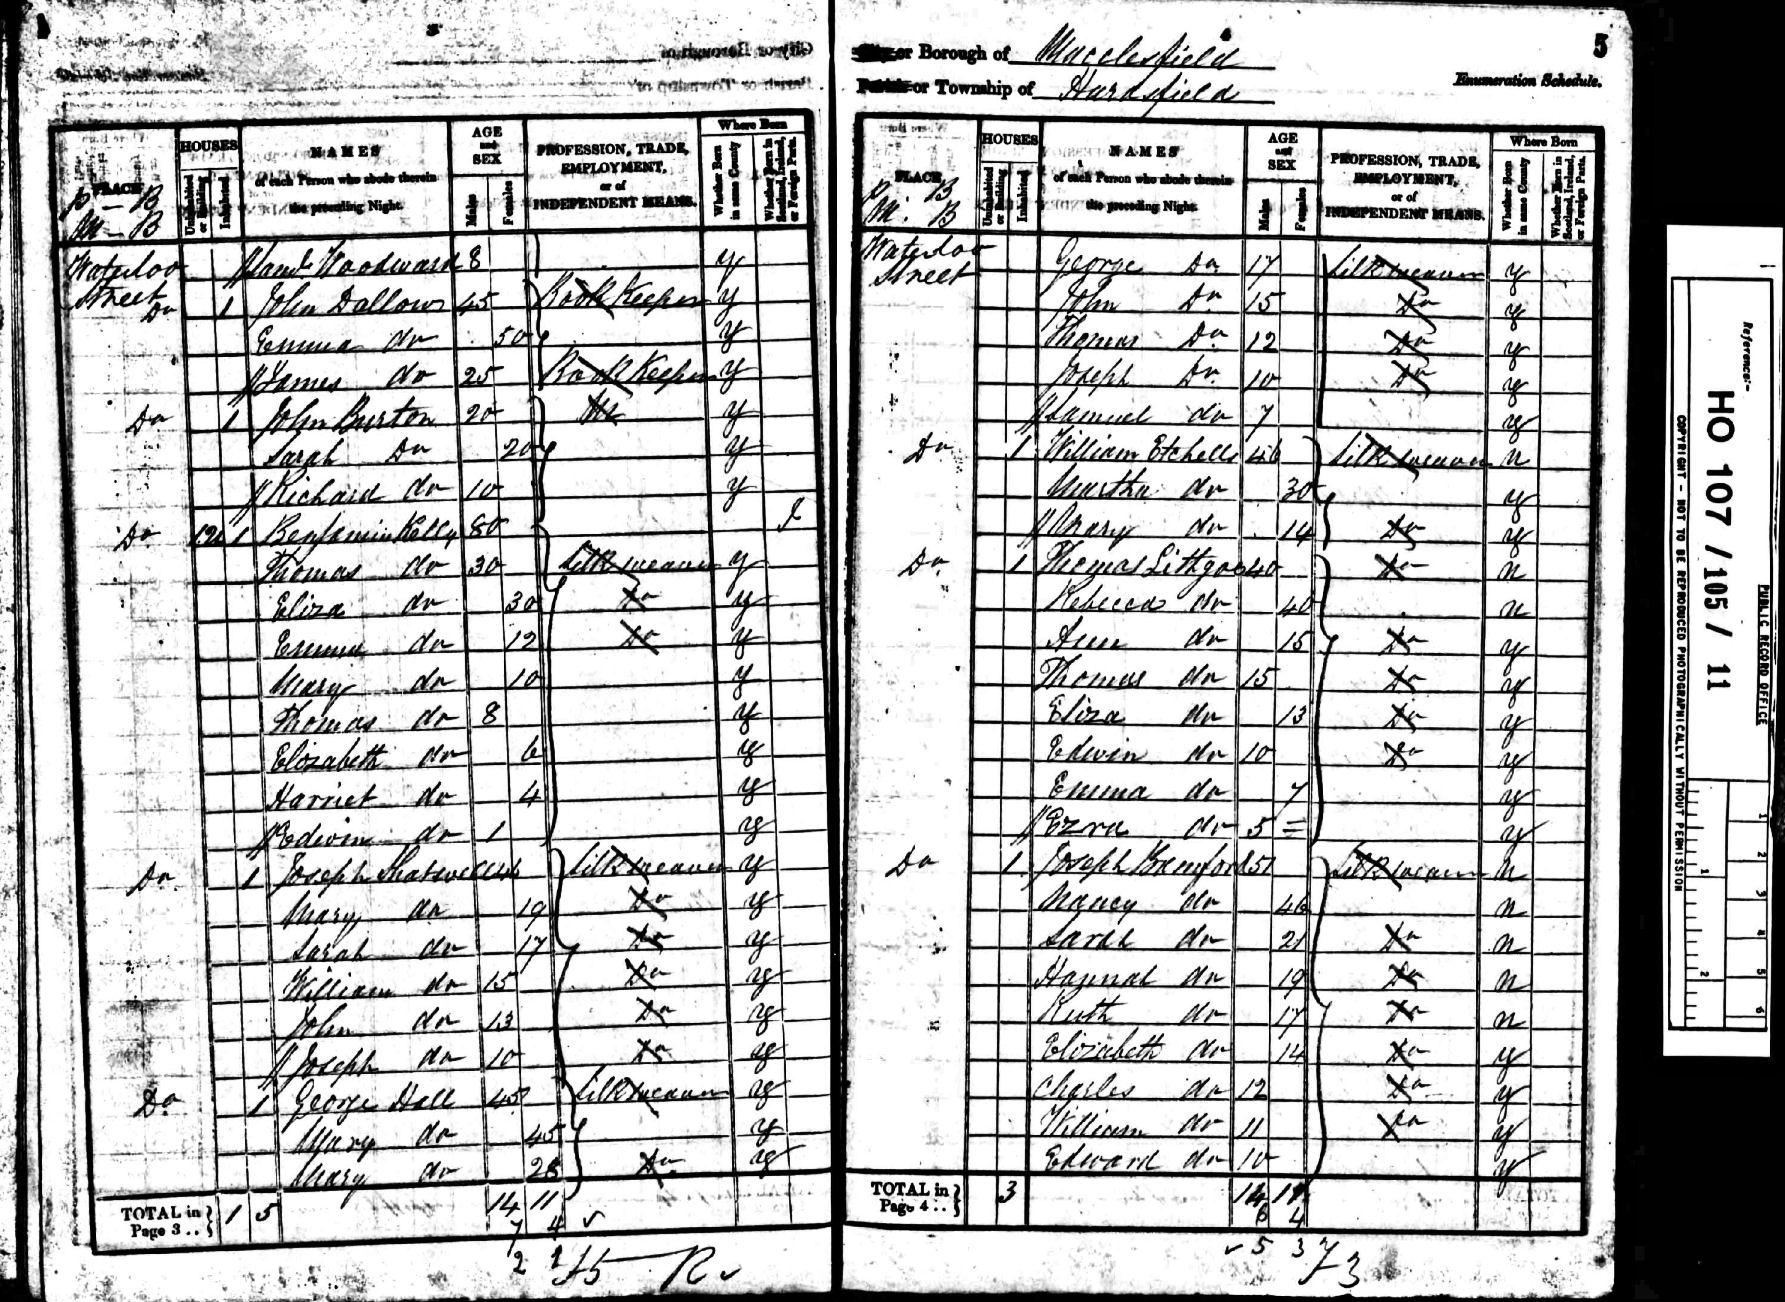 City or Borough of
Parish or Township of
PLACE
HOUSES
Uninhabited or Building
Inhabited
NAMES
of each Person who abode therein
the preceding Night.
AGE and SEX
Males
Females
PROFESSION, TRADE, EMPLOYMENT, or of INDEPENDENT MEANS.
Where Born
Whether Born in same County
Whether Born in Scotland, Ireland, or Foreign Parts.
P - B
M - B
Waterloo Street Saml Woodward 8 y
Do 1 John Dallows 45 Book Keeper y
Emma do 50 y
James do 25 Book Keeper y
Do 1 John Burton 20 y
Sarah Do 20 y
Richard do 10 y
Do 1 Benjamin Kelly 80 I
Thomas do 30 Silk weaver y
Eliza do 30 Do y
Emma do 12 Do y
Mary do 10 y
Thomas do 8 y
Elizabeth do 6 y
Harriet do 4 y
Edwin do 1 y
Do 1 Joseph Silk weaver y
Mary do 19 Do y
Sarah do 17 Do y
William do 15 Do y
John do 13 Do y
Joseph do 10 Do y
Do 1 George Hall 45 Silk weaver y
Mary do 45 y
Mary do Do y
TOTAL in Page 3 .. } 1 5 14 11
7 4
2
R
5
City or Borough of Macclesfield
Parish or Township of Hurdsfield
Enumeration Schedule.
PLACE
HOUSES
Uninhabited or Building
Inhabited
NAMES
of each Person who abode therein
the preceding Night.
AGE and SEX
Males
Females
PROFESSION, TRADE, EMPLOYMENT, or of INDEPENDENT MEANS.
Where Born
Whether Born in same County
Whether Born in Scotland, Ireland, or Foreign Parts.
P. B
M. B
Waterloo Street George Do 17 Silk weaver y
John Do 15 Do y
Thomas Do 12 Do y
Joseph Do 10 Do y
Samuel do 7 y
Do 1 William Etchells 46 Silk weaver n
Martha do 30 y
Mary do 14 Do y
Do 1 Thomas Lithgoe 40 Do n
Rebecca do 40 n
Ann do 15 Do y
Thomas do 15 Do y
Eliza do 13 Do y
Edwin do 10 Do y
Emma do 7 y
Ezra do 5 y
Do 1 Joseph Bamford 51 Silk weaver n
Nancy do 46 n
Sarah do 21 Do n
Hannah do 19 Do n
Ruth do 17 Do n
Elizabeth do 14 Do y
Charles do 12 Do y
William do 11 Do y
Edward do 10 y
TOTAL in Page 4 .. } 3 14 11
6 4
5 3
Reference:-
HO 107 / 105 / 11
PUBLIC RECORD OFFICE
COPYRIGHT - NOT TO BE REPRODUCED PHOTOGRAPHICALLY WITHOUT PERMISSION
1 2 3 4 5 6
1 2